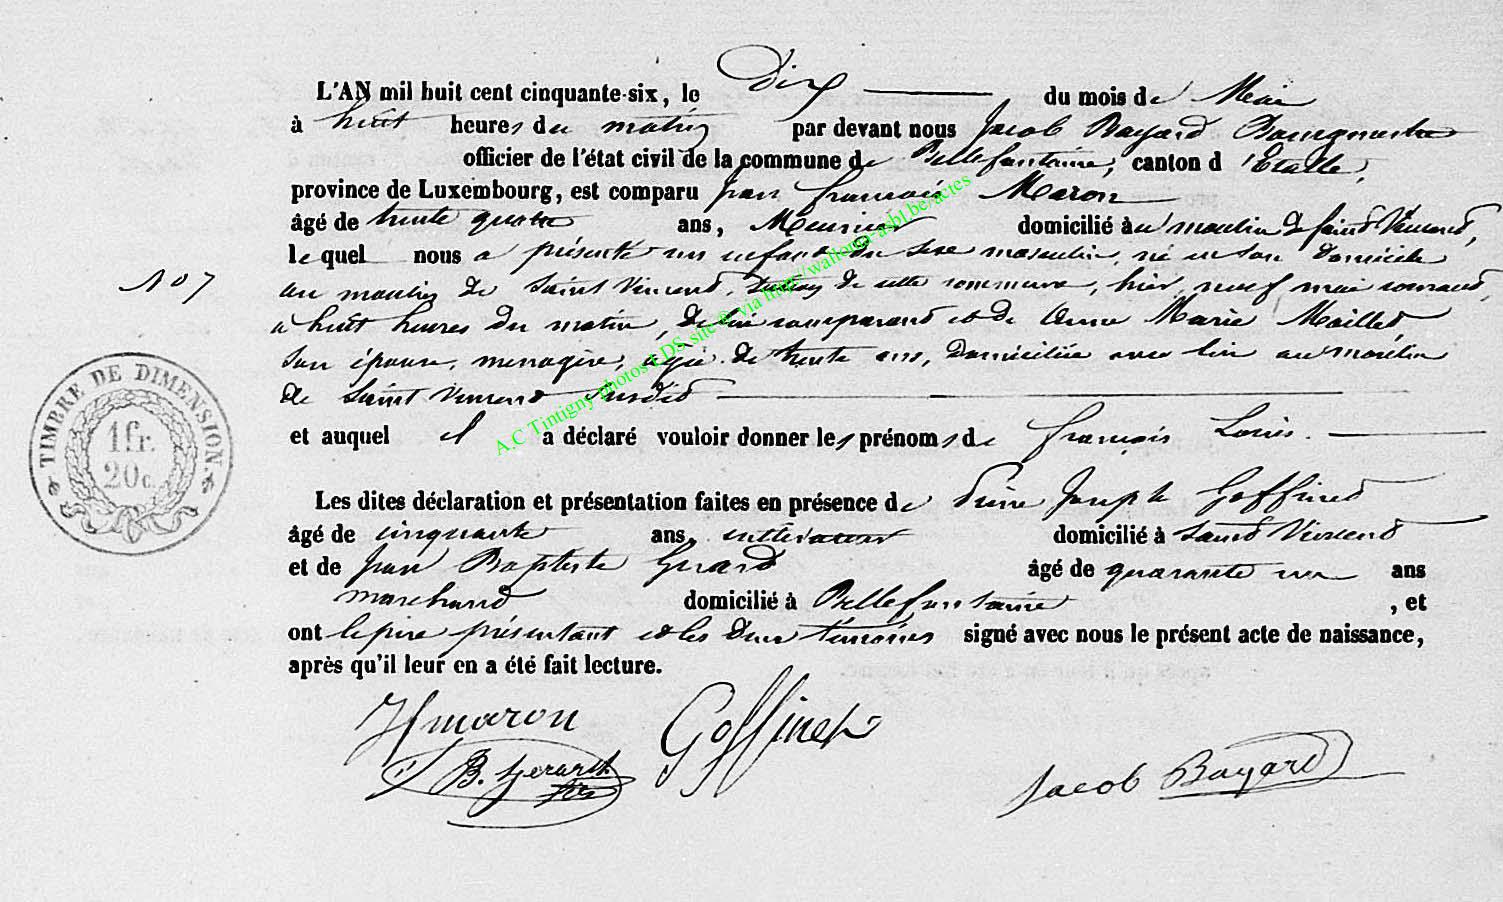 L'AN mil huit cent cinquante-six, le Dix du mois de Mai
à huit heures du matin par devant nous Jacob Bayard Bourgmestre
officier de l'état civil de la commune de Bellefontaine, canton d'Etalle,
province de Luxembourg, est comparu Jean François Maron
âgé de trente quatre ans, Meunier domicilié au moulin de Saint Vincent,
lequel nous a présenté un enfant du sexe masculin, né en son domicile
N° 7
au moulin de Saint Vincent, de cette commune, hier, neuf mai courant,
a huit heures du matin, de lui comparant et de Anne Marie Maillet
son épouse, menagère, agée de trente ans, domiciliée avec lui au moulin
de Saint Vincent susdit
et auquel il a déclaré vouloir donner les prénoms de François Louis.
TIMBRE DE DIMENSION.
1 fr.
20 c.
Les dites déclaration et présentation faites en présence de Pierre Joseph Goffinet
âgé de cinquante ans, cultivateur domicilié à Saint Vincent
et de Jean Baptiste Gerard âgé de quarante un ans
marchand domicilié à Bellefontaine, et
ont le père présentant et les deux témoins signé avec nous le présent acte de naissance,
après qu'il leur en a été fait lecture.
Jfmaron
Goffinet
J B. Gerard
Jacob Bayard
A.C Tintigny photos LDS site © via http://wallonia-asbl.be/actes